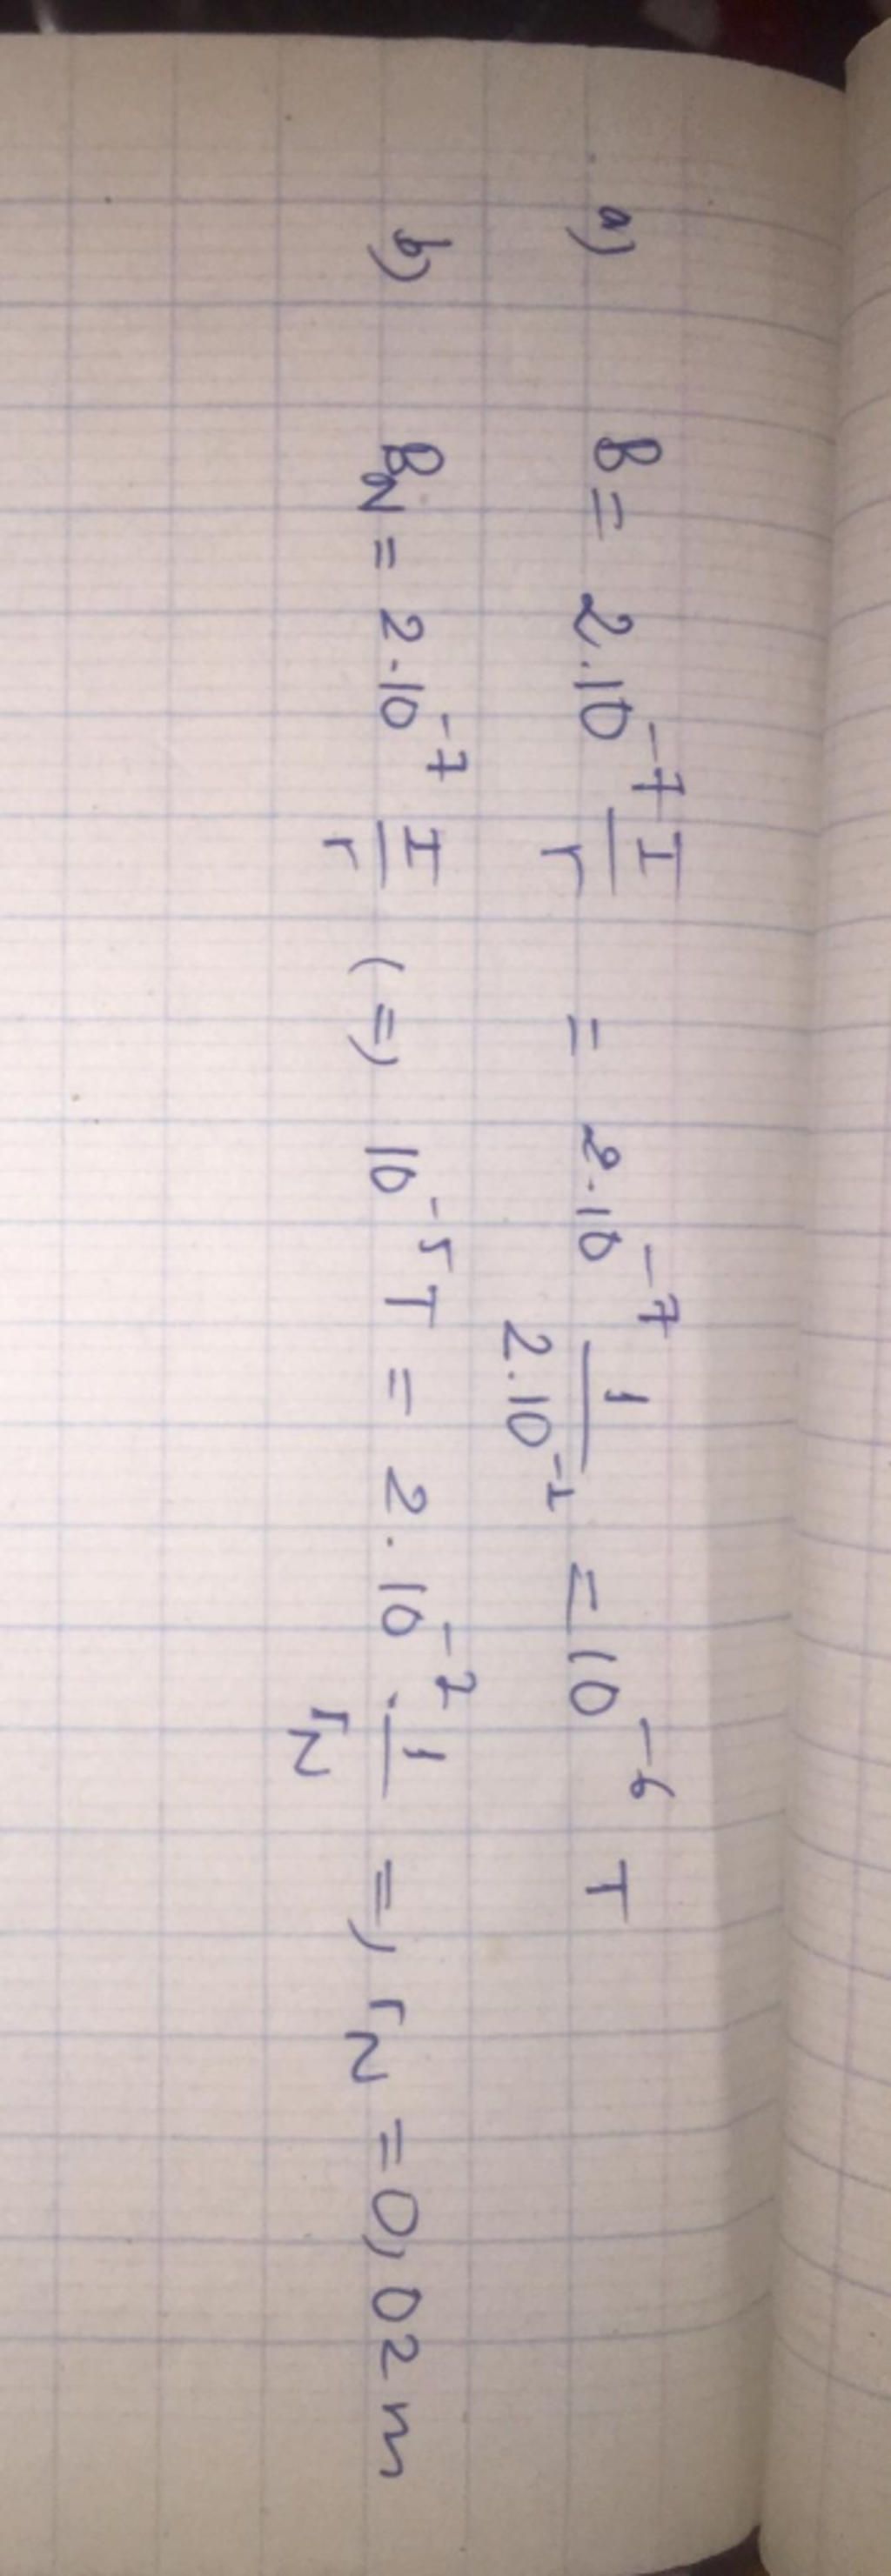 a) B = 2.10^-7 I/r = 2.10^-7 1/2.10^-1 = 10^-6 T
b) B_N = 2.10^-7 I/r (=) 10^-5 T = 2.10^-2 . 1/r_N =) r_N = 0,02 m